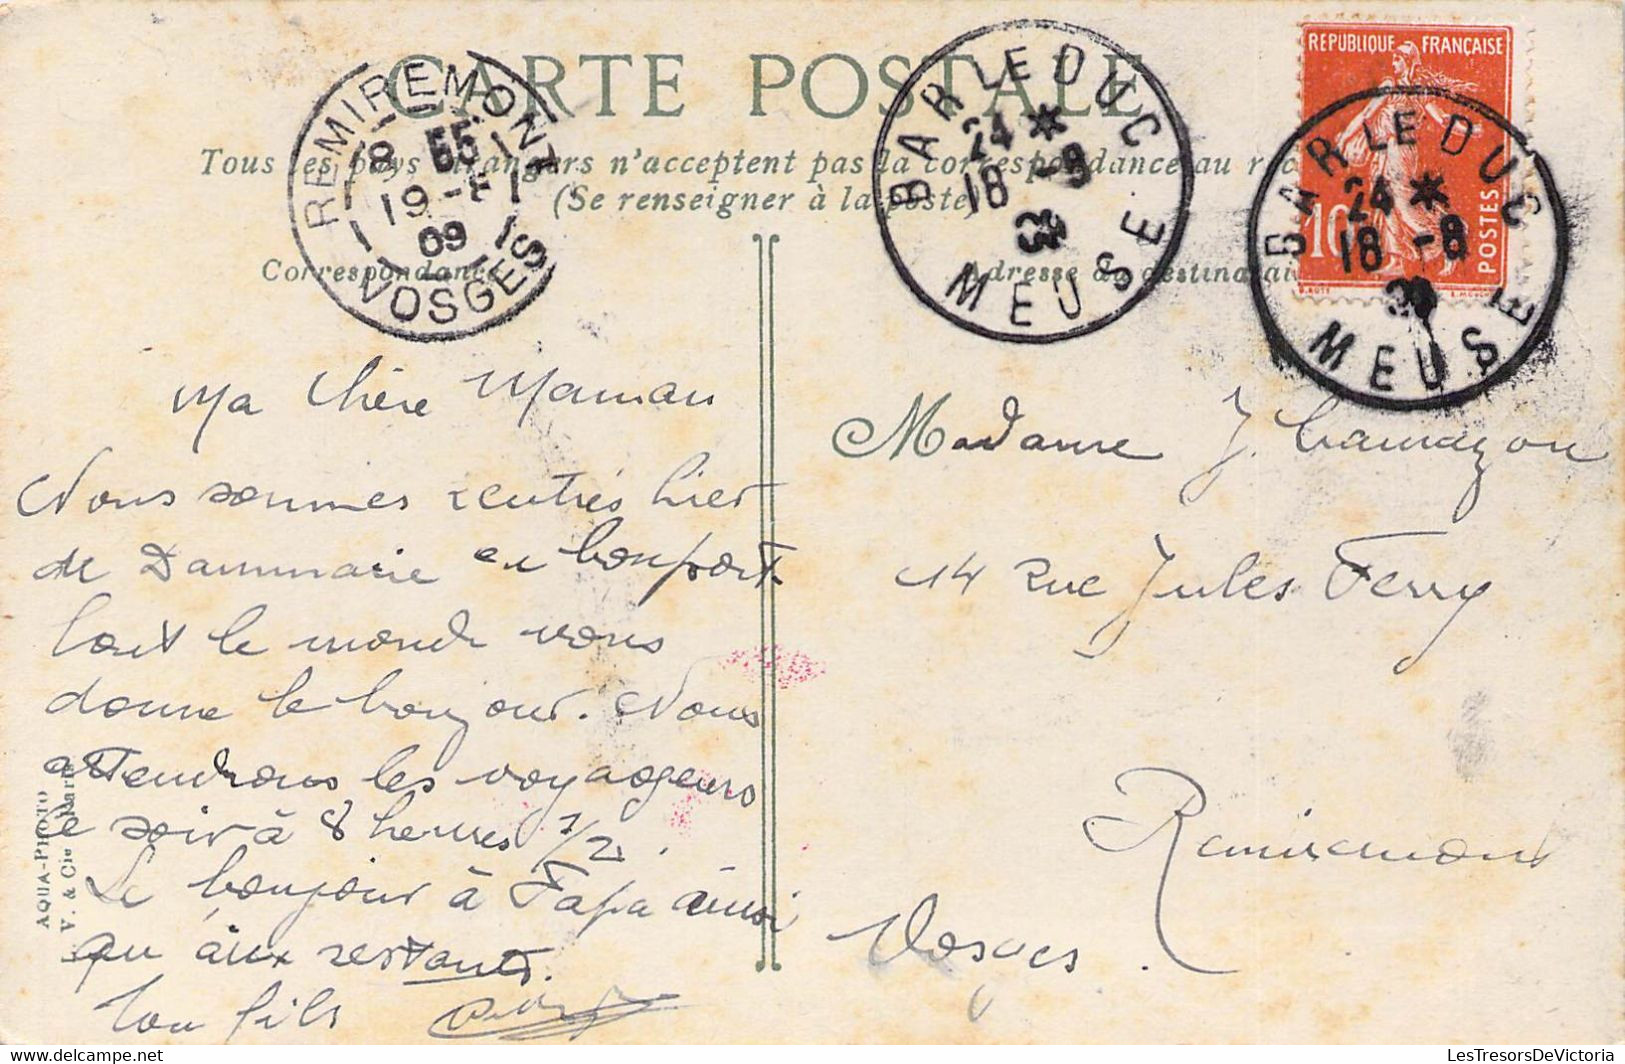 CARTE POSTALE
Tous les pays étrangers n'acceptent pas la correspondance au
(Se renseigner à la poste)
Correspondance
Adresse du destinatai
REMIREMONT
18 55
19 -8
09
VOSGES
BAR LE DUC
24 *
18 -8
MEUSE
REPUBLIQUE FRANÇAISE
10
POSTES
BAR LE DUC
24 *
18 -8
MEUSE
Ma chère Maman
Nous sommes rentrés hier
de Dammarie en bon port
tout le monde vous
donne le bonjour. Nous
attendrons les voyageurs
ce soir à 8 heures 1/2.
Le bonjour à Papa ainsi
qu'aux restants.
Ton fils
Madame J.
14 Rue Jules Ferry
Remiremont
Vosges
AQUA-PHOTO
L. V. & Cie Paris
LesTresorsDeVictoria